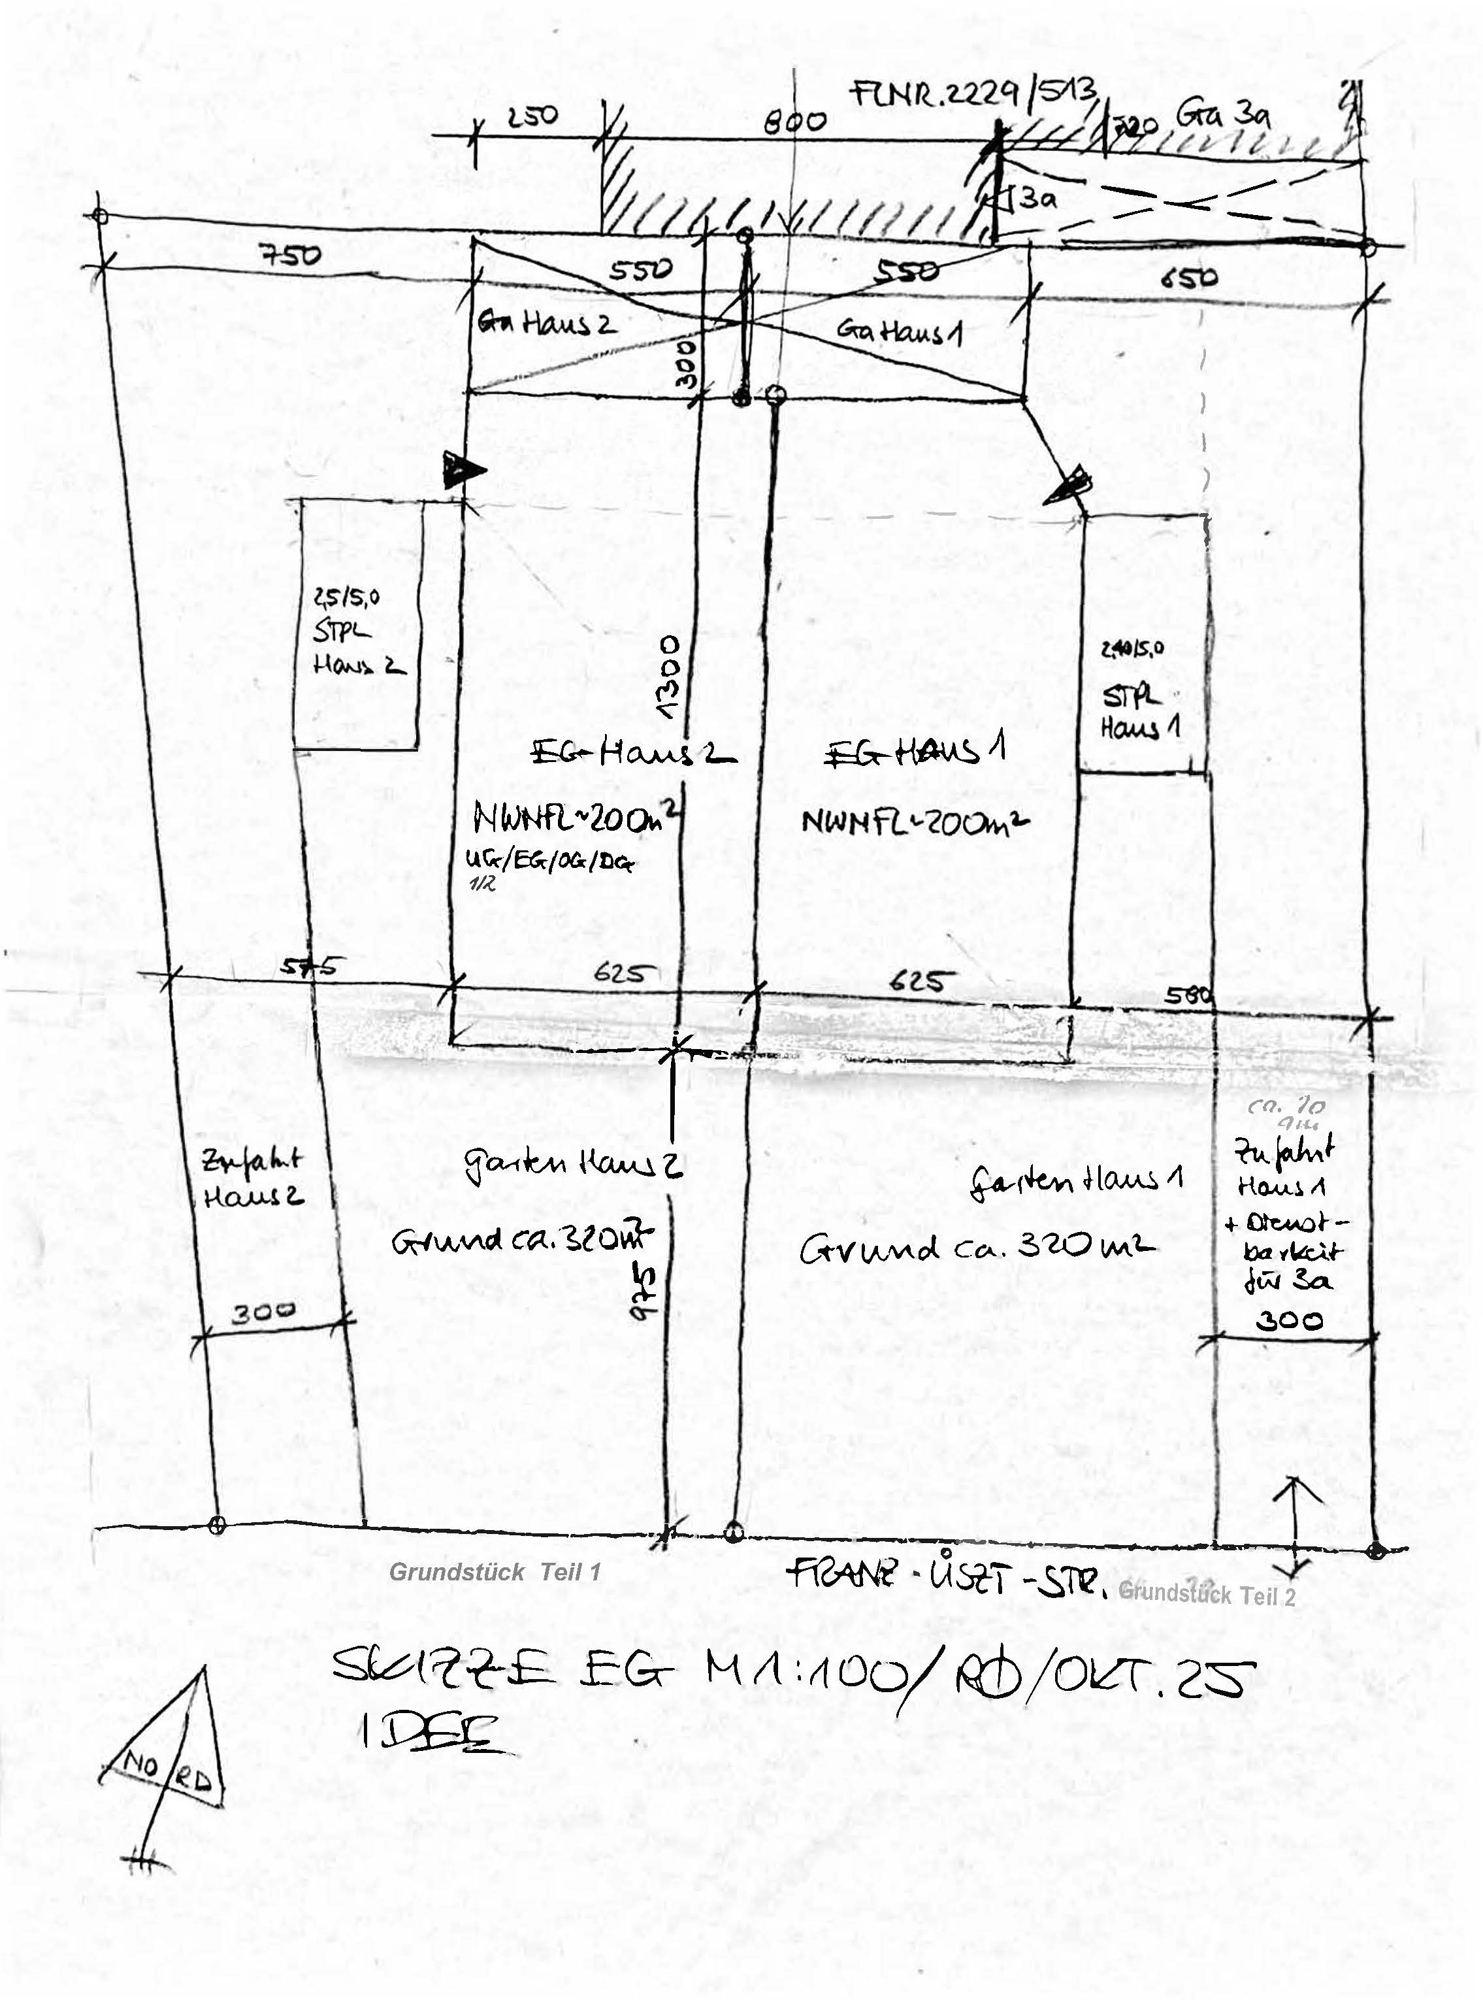 FLNR.2229/513
250
800
720
Ga 3a
3a
750
550
550
650
Ga Haus 2
Ga Haus 1
300
2,5/5,0
STPL
Haus 2
1300
2,40/5,0
STPL
Haus 1
EG-Haus 2
EG-Haus 1
NWNFL~200m²
UG/EG/OG/DG
1/2
NWNFL~200m²
575
625
625
580
ca. 70
qm
Zufahrt
Haus 2
Garten Haus 2
Garten Haus 1
Zufahrt
Haus 1
+ Dienst-
barkeit
für 3a
Grund ca. 320m²
Grund ca. 320m²
975
300
300
Grundstück Teil 1
FRANZ-LISZT-STR.
Grundstück Teil 2
SKIZZE EG M 1:100/RØ/OKT.25
IDEE
NORD